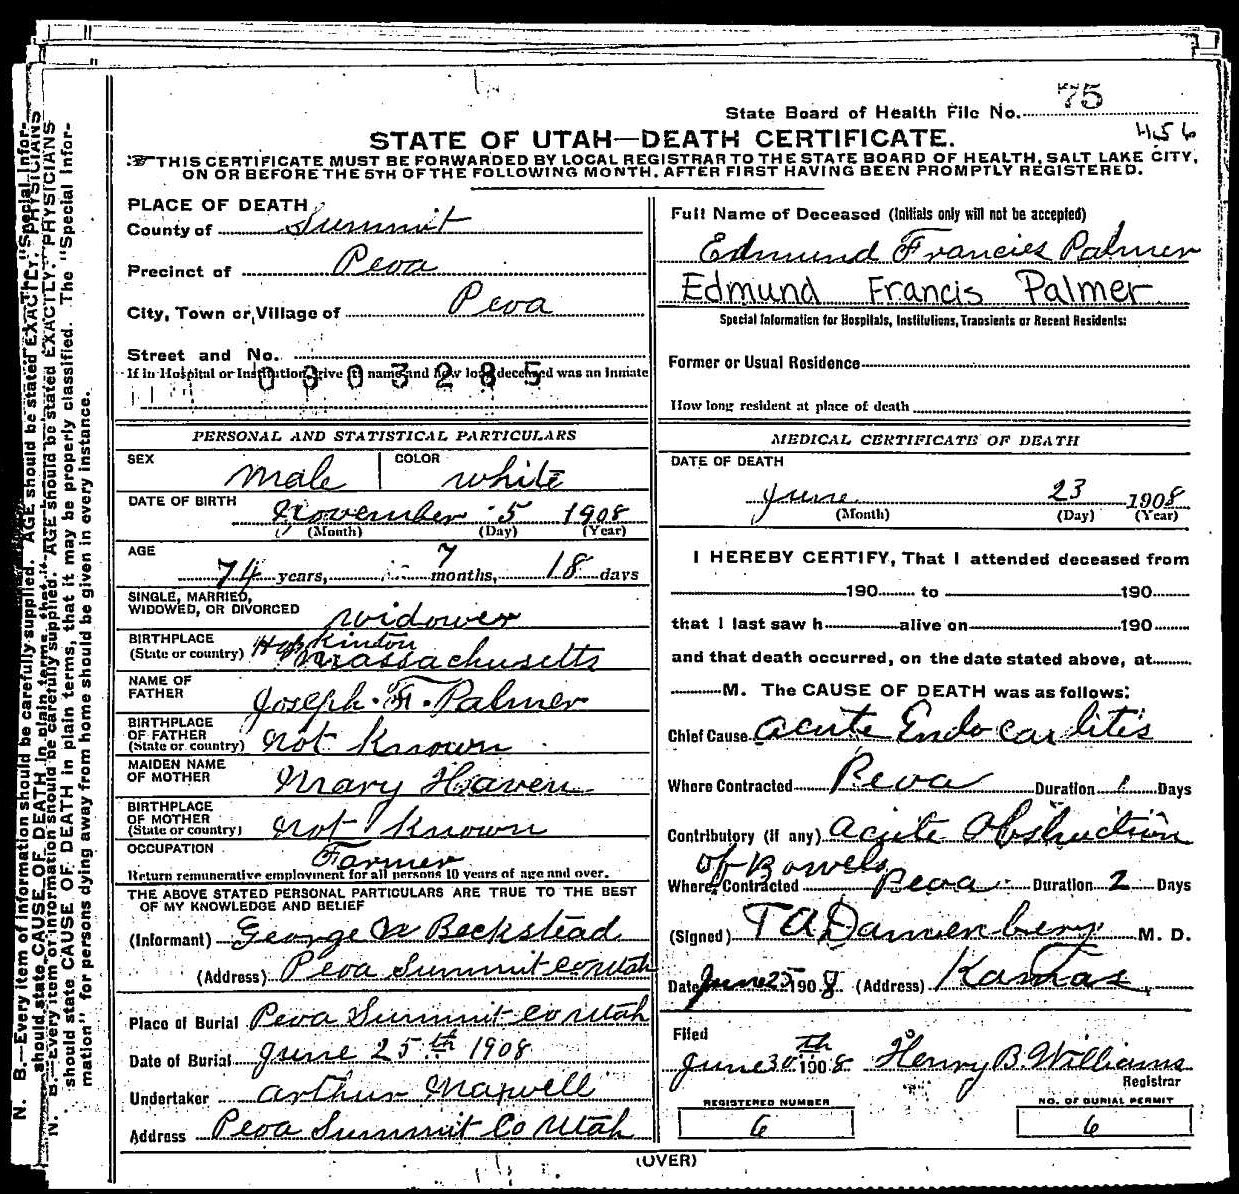 75
State Board of Health File No.
456
STATE OF UTAH—DEATH CERTIFICATE.
THIS CERTIFICATE MUST BE FORWARDED BY LOCAL REGISTRAR TO THE STATE BOARD OF HEALTH, SALT LAKE CITY,
ON OR BEFORE THE 5TH OF THE FOLLOWING MONTH, AFTER FIRST HAVING BEEN PROMPTLY REGISTERED.
PLACE OF DEATH
County of Summit
Precinct of Peoa
City, Town or Village of Peoa
Street and No.
If in Hospital or Institution, give its name and how long deceased was an Inmate
0803285
Full Name of Deceased (Initials only will not be accepted)
Edmund Francies Palmer
Edmund Francis Palmer
Special Information for Hospitals, Institutions, Transients or Recent Residents:
Former or Usual Residence
How long resident at place of death
PERSONAL AND STATISTICAL PARTICULARS
SEX male COLOR white
DATE OF BIRTH
November 5 1908
(Month) (Day) (Year)
AGE
74 years, 7 months, 18 days
SINGLE, MARRIED,
WIDOWED, OR DIVORCED widower
BIRTHPLACE Hopkinton
(State or country) Massachusetts
NAME OF
FATHER Joseph F. Palmer
BIRTHPLACE
OF FATHER
(State or country) not known
MAIDEN NAME
OF MOTHER Mary Haven
BIRTHPLACE
OF MOTHER
(State or country) not known
OCCUPATION Farmer
Return remunerative employment for all persons 10 years of age and over.
THE ABOVE STATED PERSONAL PARTICULARS ARE TRUE TO THE BEST
OF MY KNOWLEDGE AND BELIEF
(Informant) George W Beckstead
(Address) Peoa Summit Co Utah
Place of Burial Peoa Summit Co Utah
Date of Burial June 25th 1908
Undertaker Arthur Maxwell
Address Peoa Summit Co Utah
MEDICAL CERTIFICATE OF DEATH
DATE OF DEATH
June 23 1908
(Month) (Day) (Year)
I HEREBY CERTIFY, That I attended deceased from
190 to 190
that I last saw h alive on 190
and that death occurred, on the date stated above, at
M. The CAUSE OF DEATH was as follows:
Chief Cause acute Endocarditis
Where Contracted Peoa Duration 1 Days
Contributory (if any) acute Obstruction
of Bowels
Where Contracted Peoa Duration 2 Days
(Signed) T A Dannenberg M. D.
Date June 25 1908 (Address) Kamas
Filed
June 30th 1908 Henry B. Williams
Registrar
REGISTERED NUMBER
6
NO. OF BURIAL PERMIT
6
(OVER)
N. B.—Every item of information should be carefully supplied. AGE should be stated EXACTLY. PHYSICIANS
should state CAUSE OF DEATH in plain terms, that it may be properly classified. The "Special Infor-
mation" for persons dying away from home should be given in every instance.